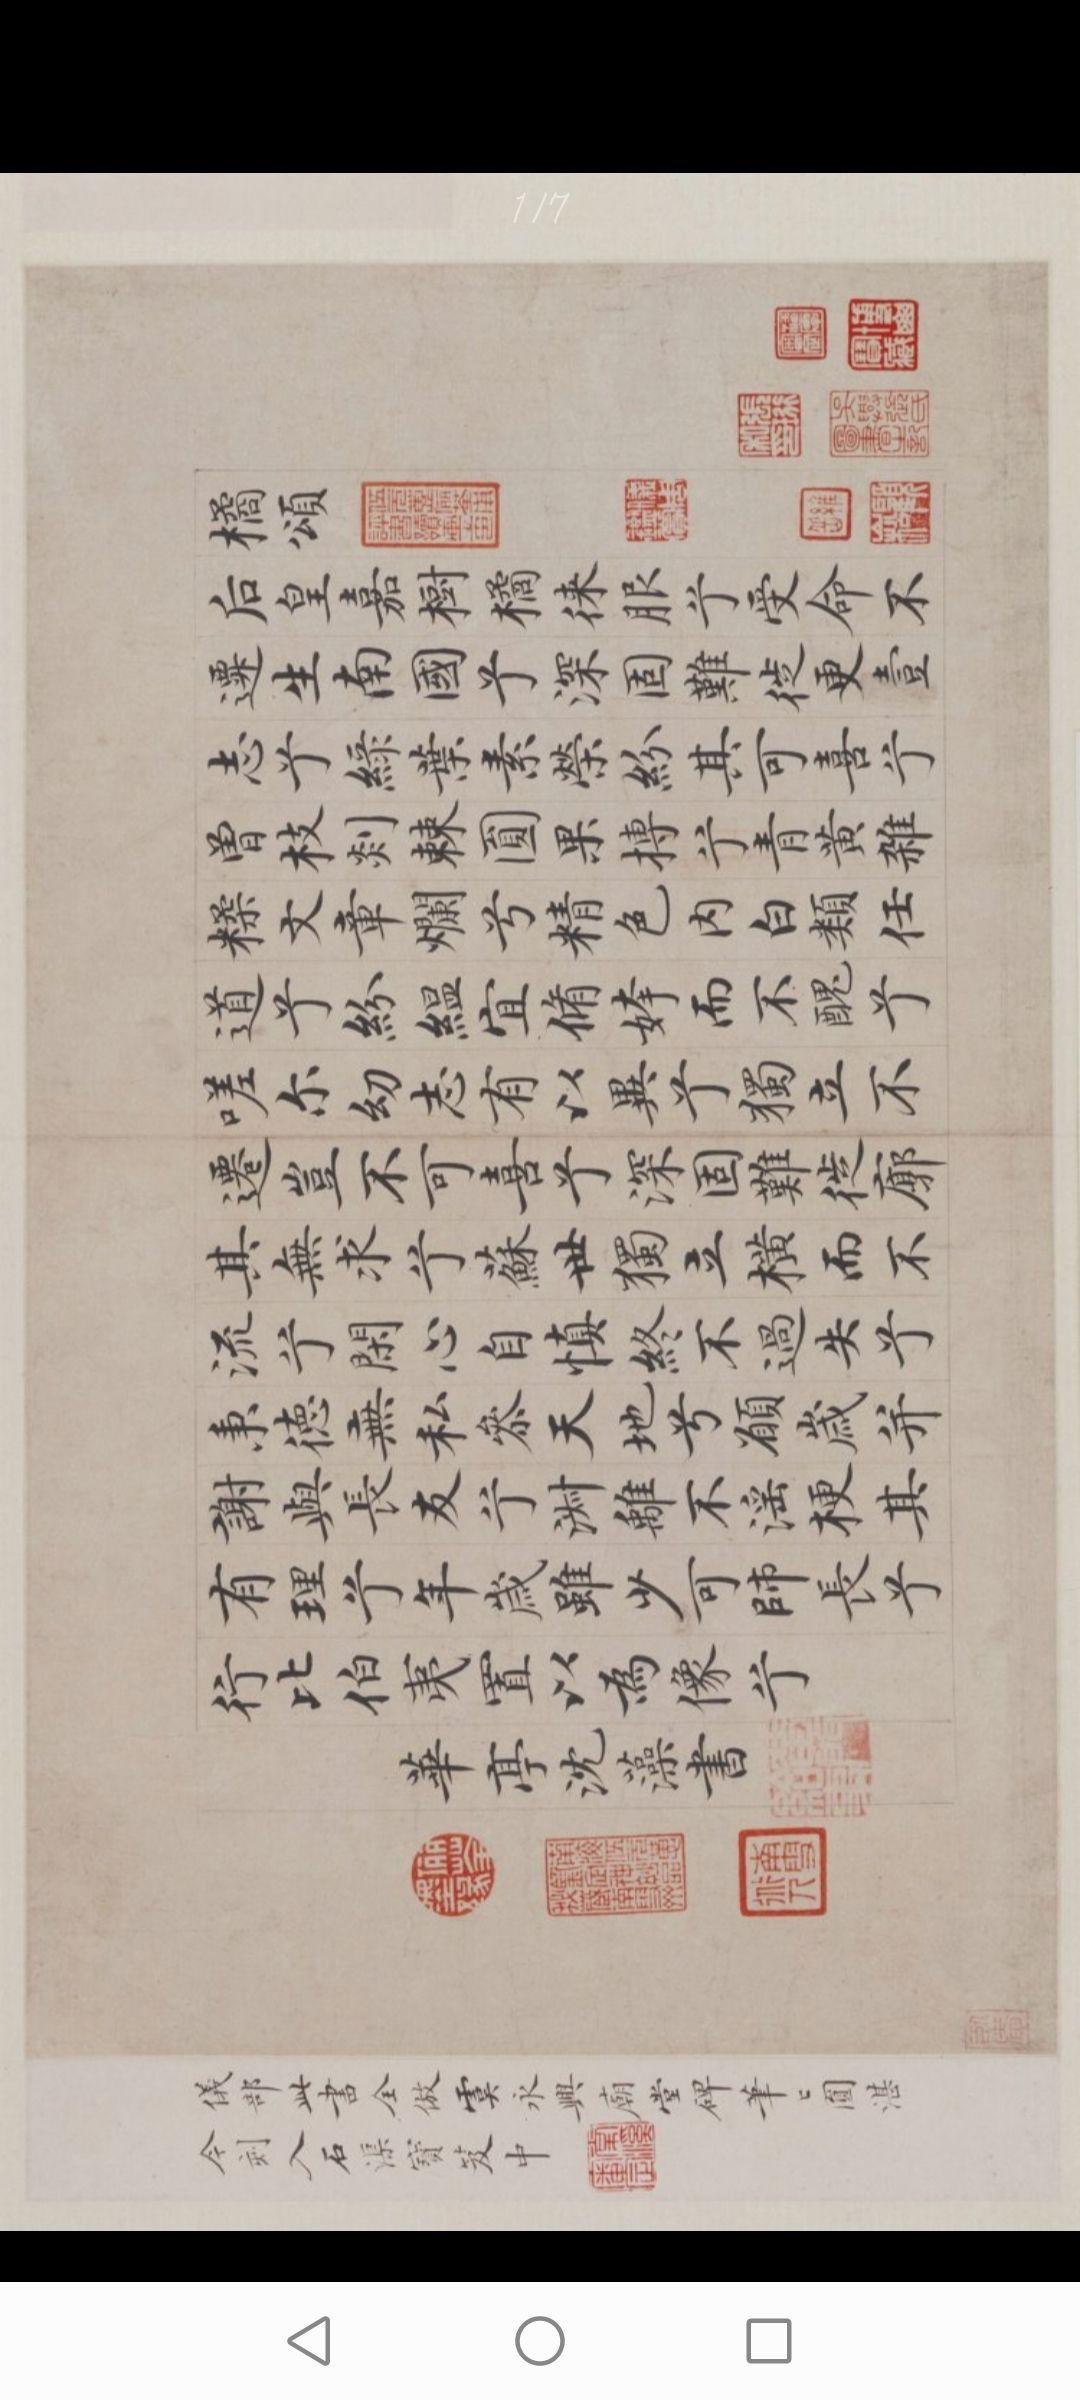 1/7
橘頌
后皇嘉樹橘徕服兮受命不
遷生南國兮深固難徙更壹
志兮綠葉素榮紛其可喜兮
曽枝剡棘圓果摶兮青黃雜
糅文章爛兮精色内白類任
道兮紛緼宜脩姱而不醜兮
嗟尔幼志有以異兮獨立不
遷豈不可喜兮深固難徙廓
其無求兮蘇世獨立橫而不
流兮閑心自慎終不過失兮
秉德無私叅天地兮願歳并
謝與長友兮淑離不滛梗其
有理兮年歳雖少可師長兮
行比伯夷置以為像兮
華亭沈藻書
儀部此書全倣虞永興廟堂碑筆〻圓湛
今刻入石渠寶笈中